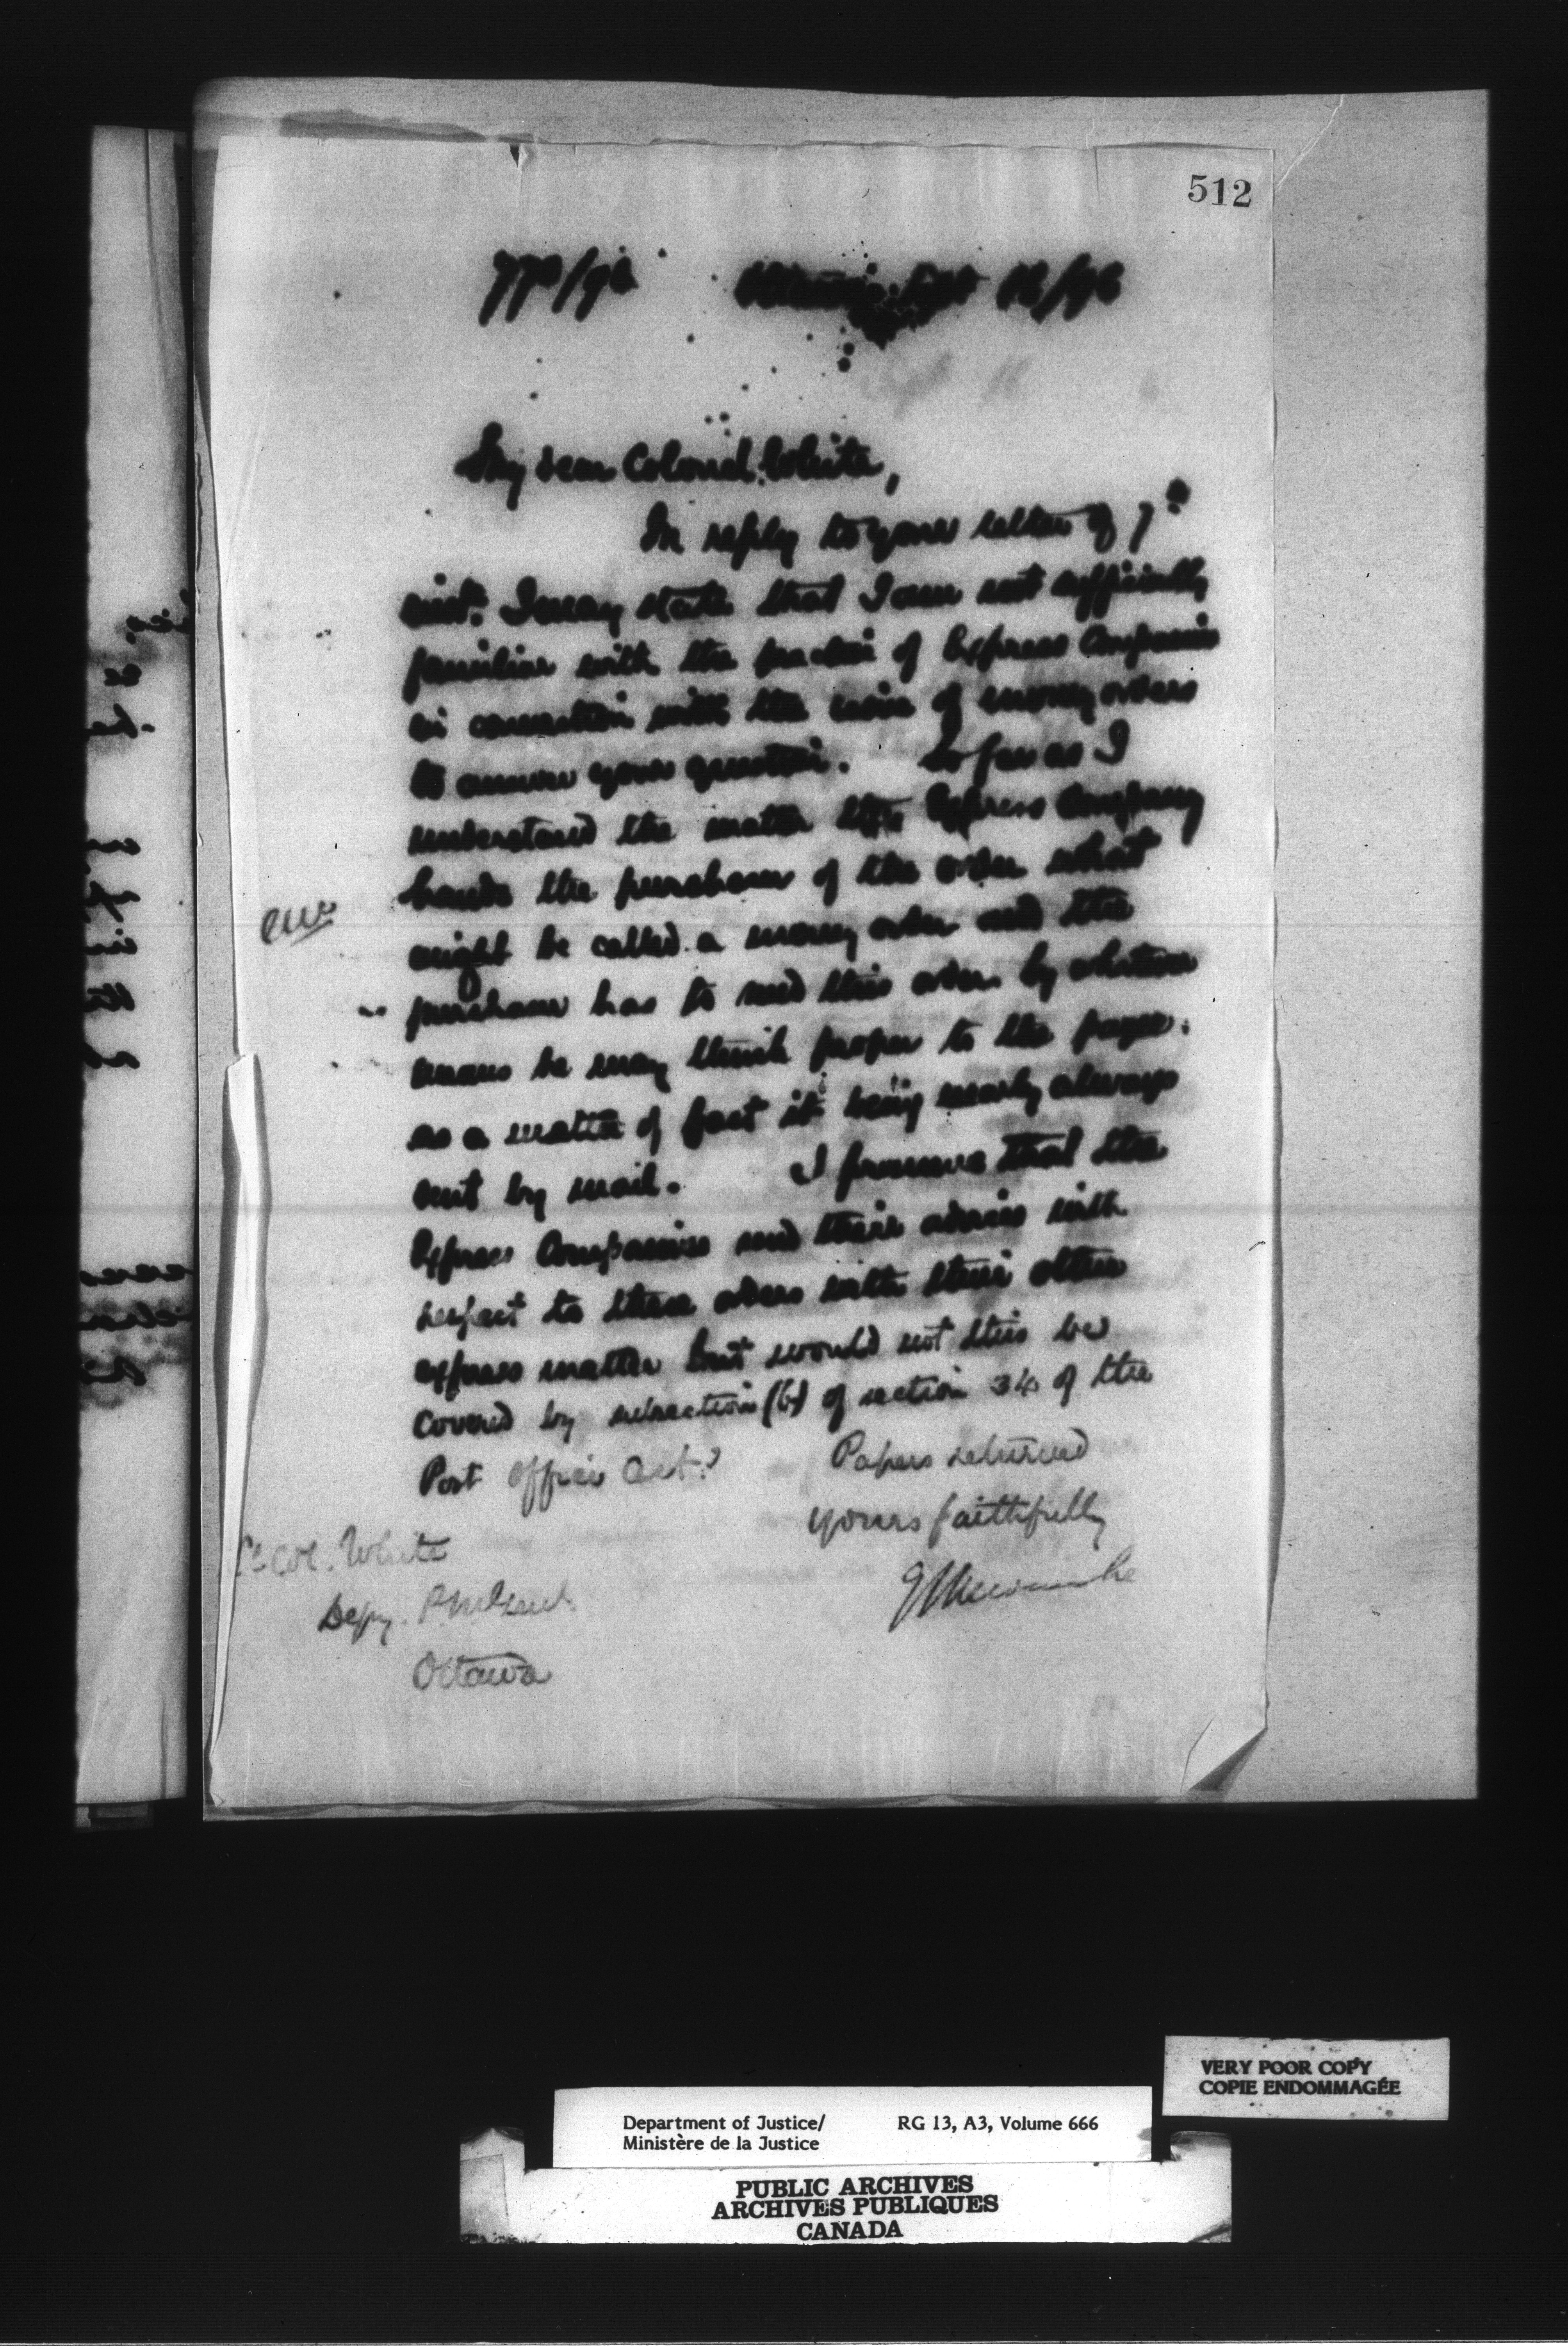 512
Ottawa, Sept 18/96
My dear Colonel White,
In reply to your letter of 7th
inst. I may state that I am not sufficiently
familiar with the practice of Express Companies
in connection with the issue of money orders
to answer your question. So far as I
understand the matter the Express Company
hands the purchaser of the order what
might be called a money order and the
purchaser has to send this order by whatever
means he may think proper to the payee.
as a matter of fact it being nearly always
sent by mail. I presume that the
Express Companies send their advices with
respect to these orders with their other
express matter but would not this be
covered by subsection (b) of section 34 of the
Post Office Act? Papers returned
Yours faithfully
Lt Col. White
Depy. P M Genl.
Ottawa
VERY POOR COPY
COPIE ENDOMMAGÉE
Department of Justice/ RG 13, A3, Volume 666
Ministère de la Justice
PUBLIC ARCHIVES
ARCHIVES PUBLIQUES
CANADA